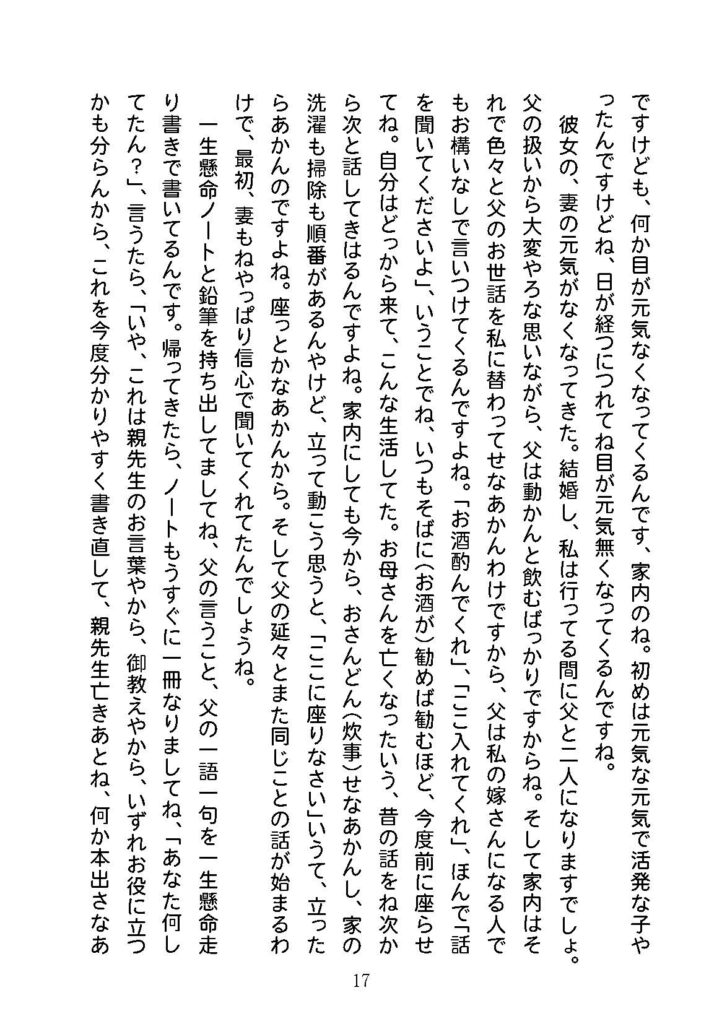 ですけども、何か目が元気なくなってくるんです、家内のね。初めは元気な元気で活発な子や
ったんですけどね、日が経つにつれてね目が元気無くなってくるんですね。
彼女の、妻の元気がなくなってきた。結婚し、私は行ってる間に父と二人になりますでしょ。
父の扱いから大変やろな思いながら、父は動かんと飲むばっかりですからね。そして家内はそ
れで色々と父のお世話を私に替わってせなあかんわけですから、父は私の嫁さんになる人で
もお構いなしで言いつけてくるんですよね。「お酒酌んでくれ」、「ここ入れてくれ」、ほんで「話
を聞いてくださいよ」、いうことでね、いつもそばに(お酒が)勧めば勧むほど、今度前に座らせ
てね。自分はどっから来て、こんな生活してた。お母さんを亡くなったいう、昔の話をね次か
ら次と話してきはるんですよね。家内にしても今から、おさんどん(炊事)せなあかんし、家の
洗濯も掃除も順番があるんやけど、立って動こう思うと、「ここに座りなさい」いうて、立った
らあかんのですよね。座っとかなあかんから。そして父の延々とまた同じことの話が始まるわ
けで、最初、妻もねやっぱり信心で聞いてくれてたんでしょうね。
一生懸命ノートと鉛筆を持ち出してましてね、父の言うこと、父の一語一句を一生懸命走
り書きで書いてるんです。帰ってきたら、ノートもうすぐに一冊なりましてね、「あなた何し
てたん？」、言うたら、「いや、これは親先生のお言葉やから、御教えやから、いずれお役に立つ
かも分らんから、これを今度分かりやすく書き直して、親先生亡きあとね、何か本出さなあ
17